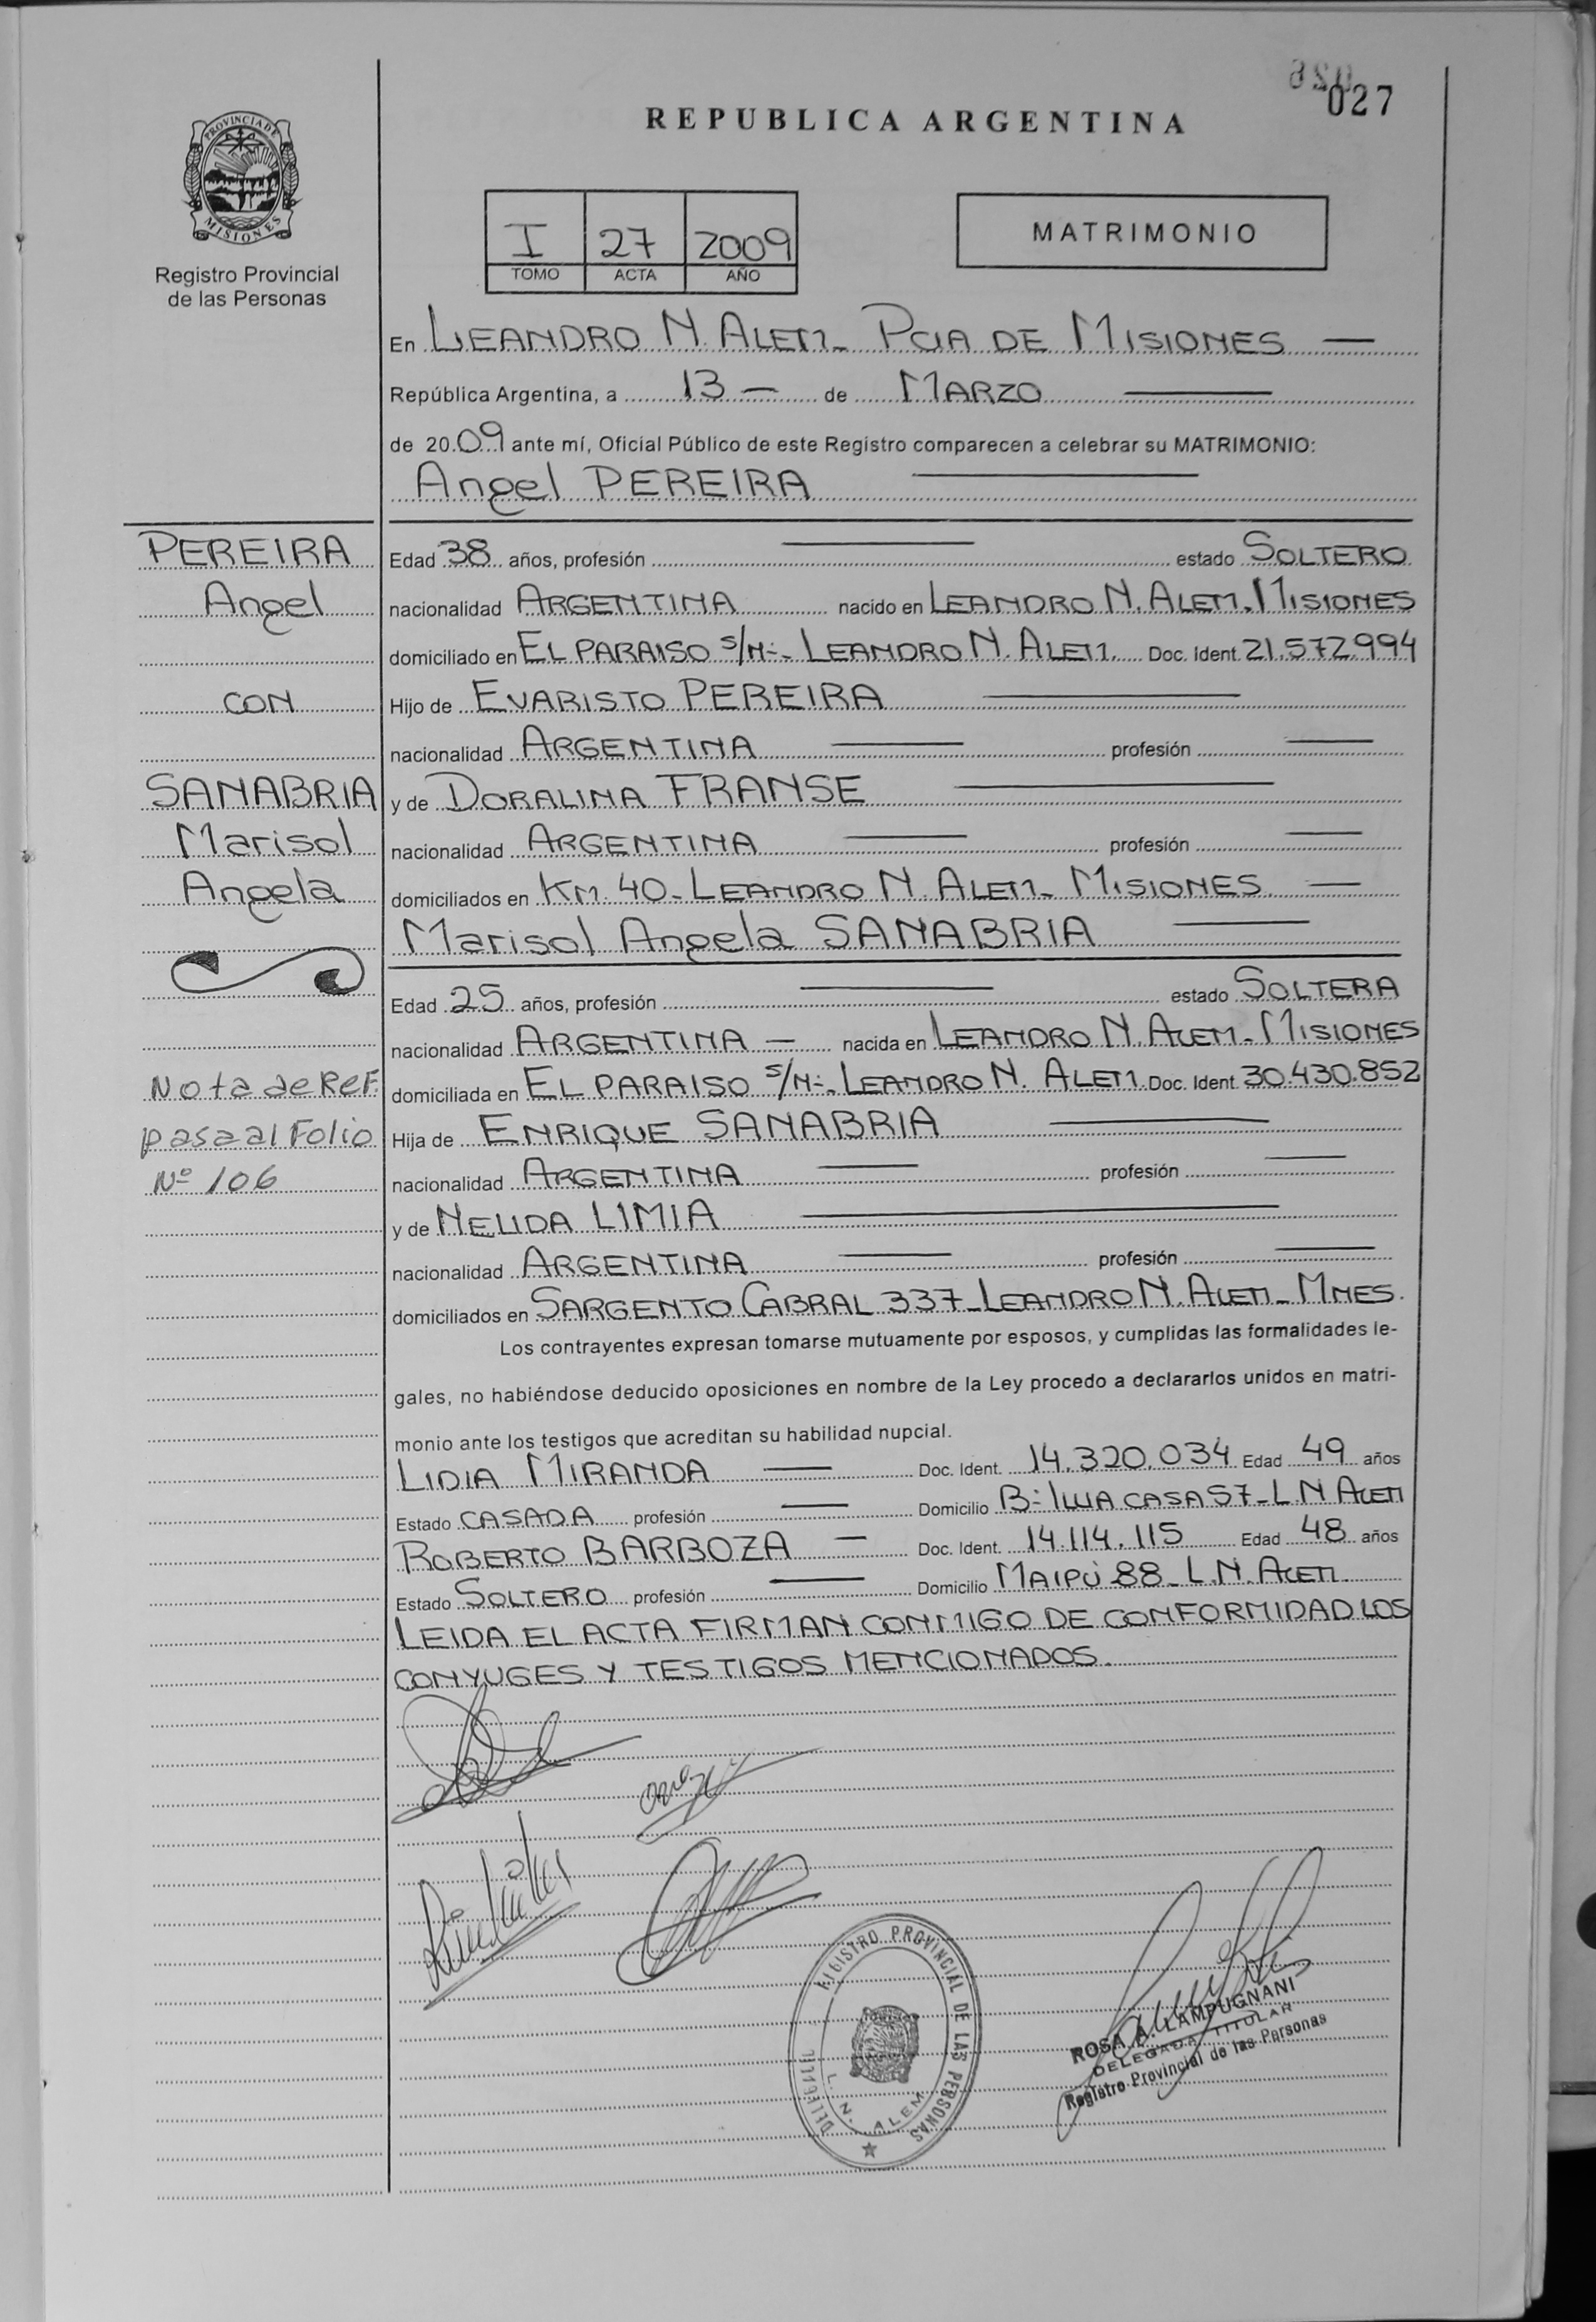 027
REPUBLICA ARGENTINA
PROVINCIA DE
MISIONES
Registro Provincial
de las Personas
I 27 2009
TOMO ACTA AÑO
MATRIMONIO
En LEANDRO N. ALEM - PCIA DE MISIONES —
República Argentina, a 13 — de MARZO —
de 2009 ante mí, Oficial Público de este Registro comparecen a celebrar su MATRIMONIO:
Angel PEREIRA —
PEREIRA
Angel
CON
SANABRIA
Marisol
Angela
Nota de Ref.
pasa al Folio
Nº 106
Edad 38 años, profesión — estado SOLTERO
nacionalidad ARGENTINA nacido en LEANDRO N. ALEM. MISIONES
domiciliado en EL PARAISO S/N-. LEANDRO N. ALEM. Doc. Ident. 21.572.994
Hijo de EVARISTO PEREIRA —
nacionalidad ARGENTINA — profesión —
y de DORALINA FRANSE —
nacionalidad ARGENTINA — profesión —
domiciliados en KM. 40 - LEANDRO N. ALEM - MISIONES —
Marisol Angela SANABRIA —
Edad 25 años, profesión — estado SOLTERA
nacionalidad ARGENTINA — nacida en LEANDRO N. ALEM - MISIONES
domiciliada en EL PARAISO S/N-. LEANDRO N. ALEM. Doc. Ident. 30.430.852
Hija de ENRIQUE SANABRIA —
nacionalidad ARGENTINA — profesión —
y de NELIDA LIMIA —
nacionalidad ARGENTINA — profesión —
domiciliados en SARGENTO CABRAL 337 - LEANDRO N. ALEM - MNES.
Los contrayentes expresan tomarse mutuamente por esposos, y cumplidas las formalidades le-
gales, no habiéndose deducido oposiciones en nombre de la Ley procedo a declararlos unidos en matri-
monio ante los testigos que acreditan su habilidad nupcial.
LIDIA MIRANDA — Doc. Ident. 14.320.034 Edad 49 años
Estado CASADA profesión — Domicilio CASA 57 - L.N ALEM
ROBERTO BARBOZA — Doc. Ident. 14.114.115 Edad 48 años
Estado SOLTERO profesión — Domicilio MAIPÚ 88 - L.N. ALEM
LEIDA EL ACTA FIRMAN CONMIGO DE CONFORMIDAD LOS
CONYUGES Y TESTIGOS MENCIONADOS.
REGISTRO PROVINCIAL DE LAS PERSONAS
L. N. ALEM
ROSA A. LAMPUGNANI
DELEGADA TITULAR
Registro Provincial de las Personas